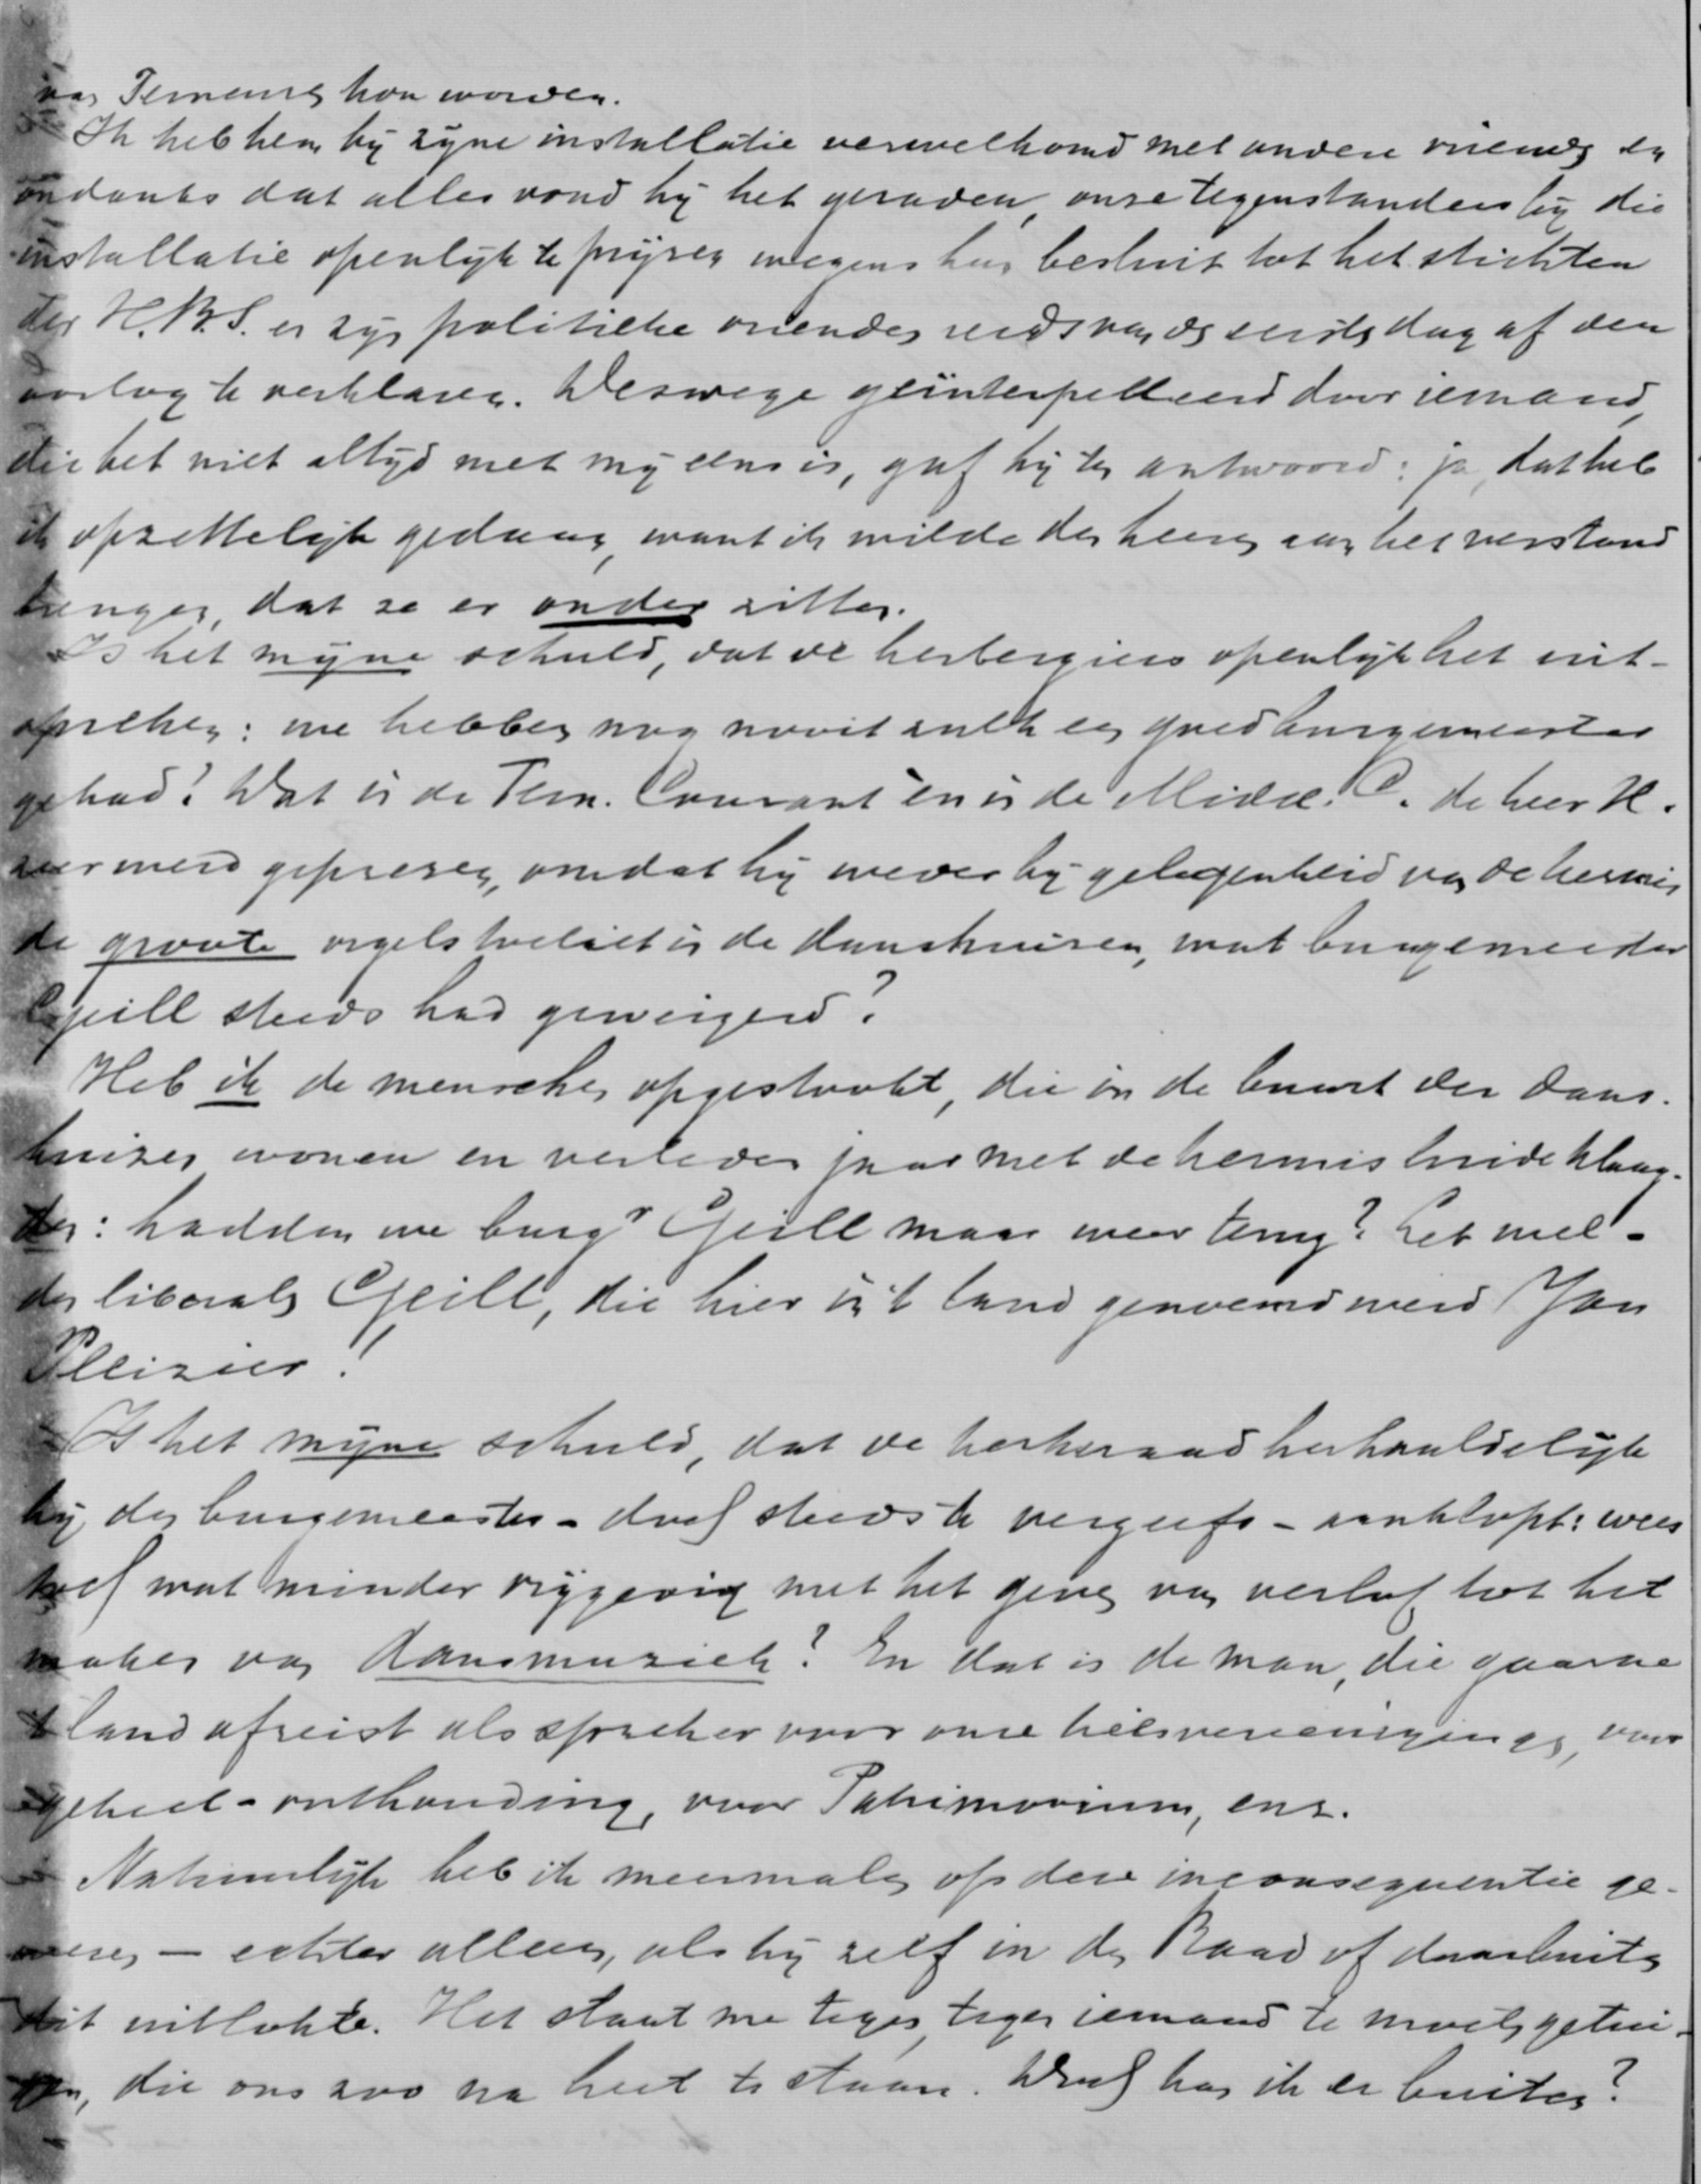 van Terneuzen kon worden.
Ik heb hem bij zijne installatie verwelkomd met andere vrienden en
ondanks dat alles vond hij het geraden, onze tegenstanders bij die
installatie openlijk te prijzen wegens hun besluit tot het stichten
der H.B.S. en zijn politieke vrienden reeds van den eersten dag af den
oorlog te verklaren. Deswege geïnterpelleerd door iemand,
die het niet altijd met mij eens is, gaf hij ten antwoord: ja, dat heb
ik opzettelijk gedaan, want ik wilde den heeren aan het verstand
brengen, dat ze er onder zitten.
Is het mijne schuld, dat de herbergiers openlijk het uit-
spreken: we hebben nog nooit zulk een goed burgemeester
gehad? Dat in de Tern. Courant èn in de Midd. C. de heer H.
zeer werd geprezen, omdat hij weder bij gelegenheid van de kermis
de groote orgels toeliet in de danshuizen, wat burgemeester
Geill steeds had geweigerd?
Heb ik de menschen opgestookt, die in de buurt der dans-
huizen wonen en verleden jaar met de kermis luide klaag-
den: hadden we burgr Geill maar weer terug? Let wel -
den liberalen Geill, die hier in 't land genoemd werd Jan
Pleizier!
Is het mijne schuld, dat de kerkeraad herhaaldelijk
bij den burgemeester - doch steeds te vergeefs - aanklopt: wees
toch wat minder vrijgevig met het geven van verlof tot het
maken van dansmuziek? En dat is de man, die gaarne
't land afreist als spreker voor onze kiesvereenigingen, voor
geheel-onthouding, voor Patrimonium, enz.
Natuurlijk heb ik meermalen op deze inconsequentie ge-
wezen — echter alleen, als hij zelf in den Raad of daarbuiten
dit uitlokte. Het staat me tegen, tegen iemand te moeten getui-
gen, die ons zoo na heet te staan. Doch kan ik er buiten?